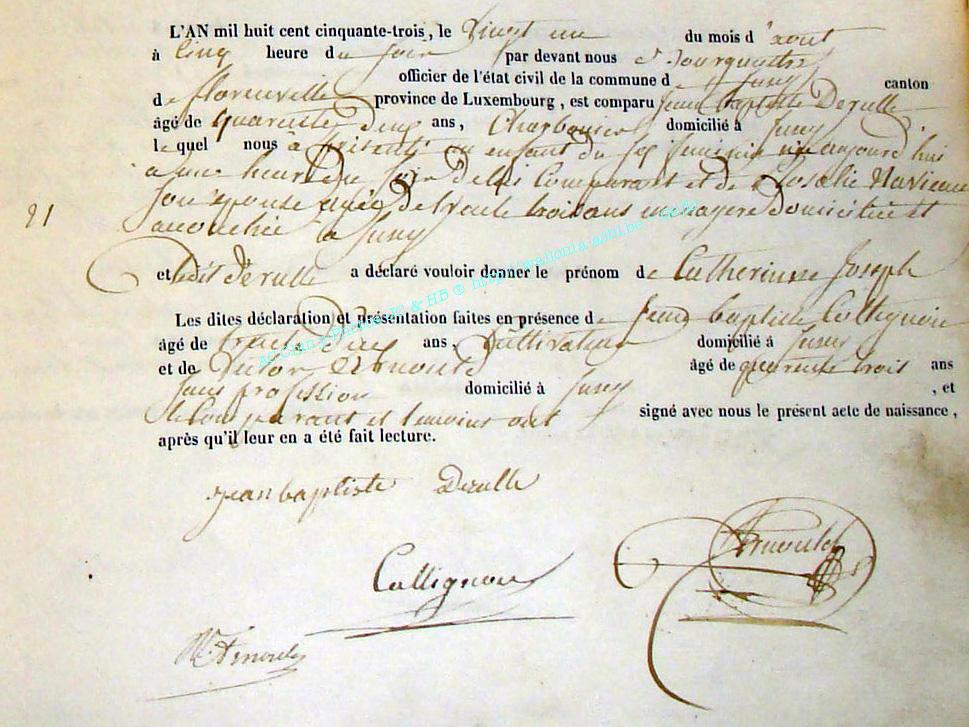 L'AN mil huit cent cinquante-trois, le Vingt un du mois d'août
à Cinq heure du soir par devant nous
officier de l'état civil de la commune de Juny canton
de florenville province de Luxembourg, est comparu Jean baptiste Derulle
âgé de quarente deux ans, Charbonier domicilié à Juny
lequel nous a présenté un enfant du sex feminin né aujourd'hui
à une heure du soir de lui Comparant et de Rosalie
son épouse agée de trente trois ans menagere domiciliée et
21
acouchée à Juny
et ledit Derulle a déclaré vouloir donner le prénom de Catherinne Joseph
Les dites déclaration et présentation faites en présence de Jean baptiste Collignon
âgé de ans, Cultivateur domicilié à Juny
et de Victor Arnould âgé de quarente trois ans
sans profission domicilié à Juny, et
le Comparant et temoins ont signé avec nous le présent acte de naissance,
après qu'il leur en a été fait lecture.
jean baptiste Derulle
Arnould
Collignon
Arnould
& HB ® http://wallonia.asbl.be